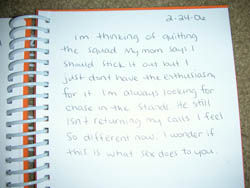 2-24-06
im thinking of quitting
the squad. My mom says I
should stick it out but I
just dont have the enthusiasm
for it. I'm always looking for
chase in the stands. He still
isnt returning my calls. I feel
So different now. I wonder if
this is what sex does to you.